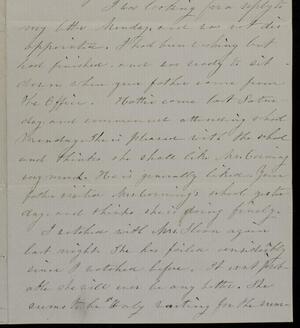 I was looking for a reply to
my letter Monday, and was not dis
appointed. I had been washing but
had finished, and was ready to sit
down when your father came from
the Office. Hattie came last Satur-
day and commenced attending school
Monday. She is pleased with the school
and thinks she shall like Mr. Corning
very much. He is generally liked. Your
father visited Mr Corning's school yester
day, and thinks she is doing finely.
I watched with Mrs. Sloan again
last night. She has failed considerably
since I watched before. It is not prob
able she will ever be any better. She
seems to be only waiting for the sum-